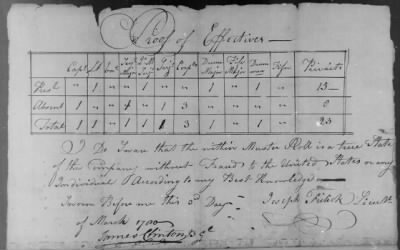 Proof of Effectives
Capt Lt Drum Major Fife Major Drum Fifes Privates
Pres 1 1 1 1 15
Absent 1 4 1 3
Total 1 1 1 3 1 1 23
I Do Swear that the within Muster Roll is a true State
of the Company without Fraud to the United States or any
Individual According to my Best Knowledge
Sworn Before me this Day Joseph Lieut
of March 1780
James Clinton B G